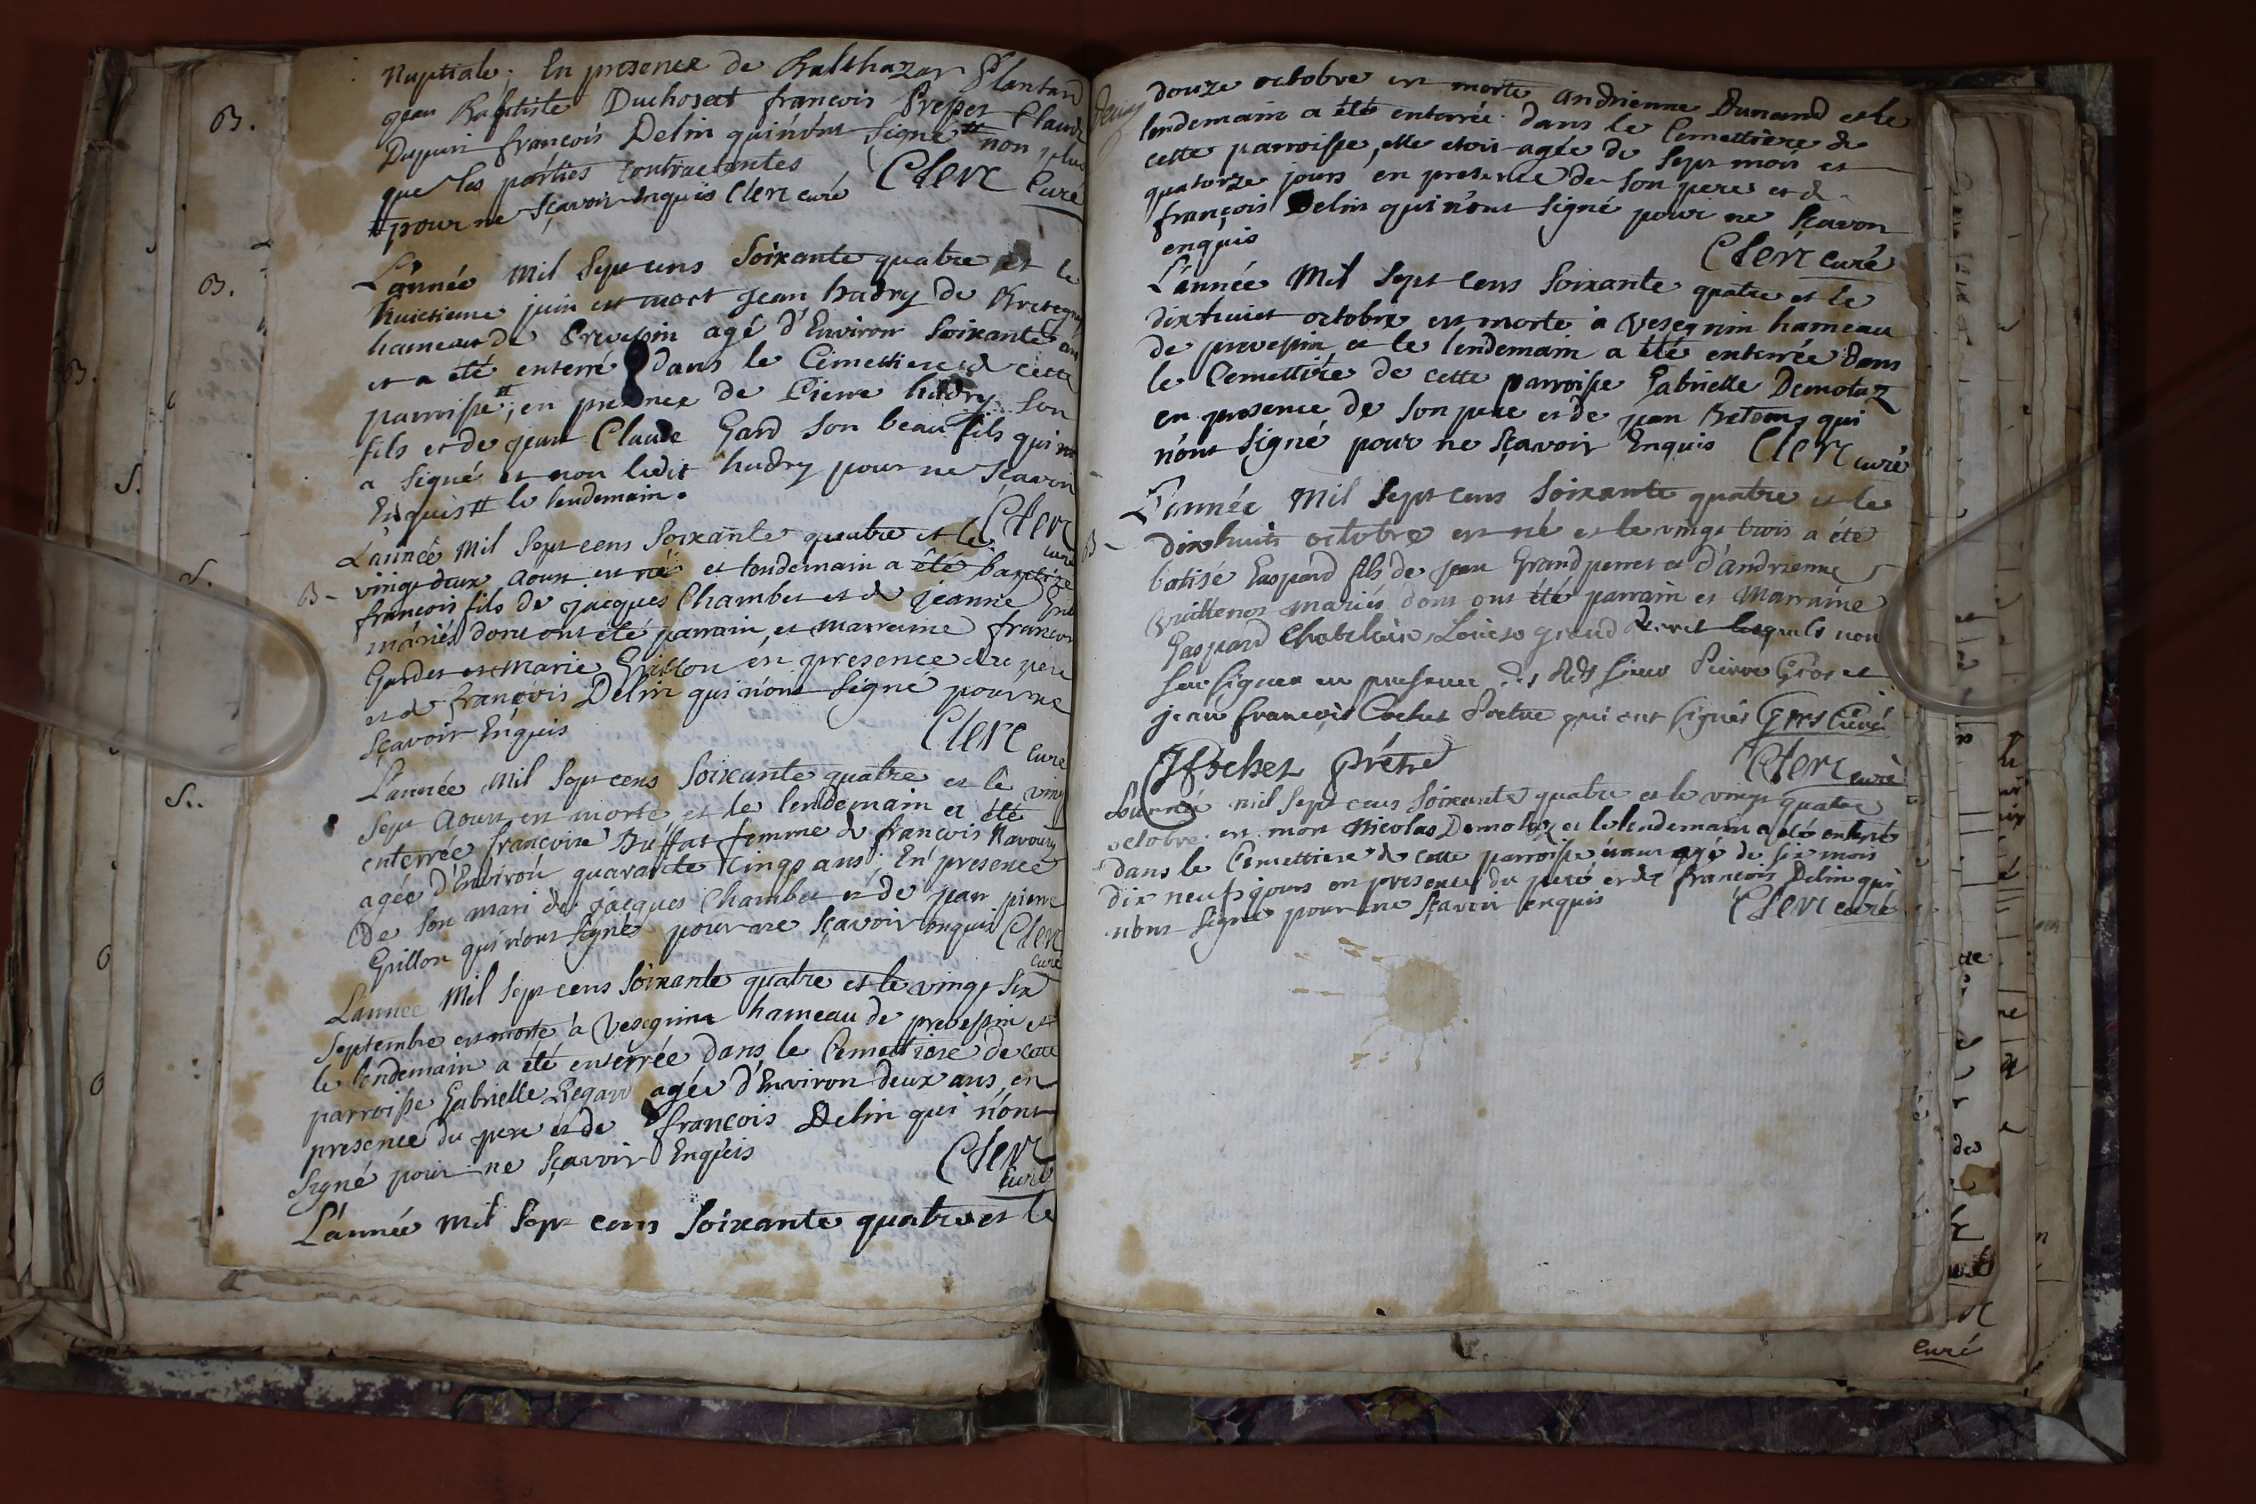 Nuptiale; En presence de Balthazar Plantard
jean Baptiste Duchosat françois Presset Claude
Dupuin françois Delin qui n'ont signé # non plus
que les parties contractantes Clerc Curé
# pour ne sçavoir enquis Clerc curé
L'année Mil Sept cens Soixante quatre et le
huictieme juin est mort jean hudry de Bretegny
hameau de Prevessin agé d'Environ Soixante ans
et a été enterré dans le Cimettiere de cette
parroisse #, en presence de Pierre hudry son
fils et de jean Claude Gard Son beau fils qui
a signé et non ledit hudry pour ne Scavoir
Enquis # le lendemain.
Clerc curé
L'année Mil Sept cens Soixante quatre et le
B - vingt deux Aoust est né et lendemain a été baptizé
françois fils de jacques Chambet et de jeanne
mariés dont ont été parrain, et marraine françois
Gardet et Marie Grillon en presence du pere
et de françois Delin qui n'ont signé pour ne
sçavoir Enquis Clerc Curé
L'année Mil Sept cens Soixante quatre et le vingt
Sept Aoust est morte et le lendemain a été
enterrée françoise Buffat femme de françois
agée d'Environ quarante Cinq ans En presence
de Son mari de jacques Chambet et de jean pierre
Grillon qui n'ont signé pour ne sçavoir enquis Clerc
curé
L'année Mil Sept cens Soixante quatre et le vingt Six
Septembre est morte à Vesegnin hameau de prevessin et
le lendemain a été enterrée dans le Cemettiere de cette
parroisse Gabrielle Regard agée d'Environ deux ans, en
presence du pere et de françois Delin qui n'ont
Signé pour ne Sçavoir Enquis Clerc
Curé
L'année Mil Sept cens Soixante quatre et le
douze octobre est morte Andrienne Dunand et le
lendemain a été enterrée dans le Cemettiere de
cette parroisse, elle etoit agée de Sept mois et
quatorze jours en presence de Son pere et de
françois Delin qui n'ont Signé pour ne Sçavoir
enquis Clerc curé
L'année Mil Sept Cens Soixante quatre et le
dix huict octobre est morte a Vesegnin hameau
de prevessin et le lendemain a été enterrée Dans
le Cemettiere de cette parroisse Gabrielle Demotaz
en presence de Son pere et de jean qui
n'ont Signé pour ne Sçavoir Enquis Clerc curé
L'année Mil Sept Cens Soixante quatre et le
B - dix huits octobre est né et le vingt trois a été
batisé Gaspard fils de jean Grandperret et d'andrienne
mariés dont ont été parrain et Marraine
Gaspard Louise grand Perret lesquels non
Sieur Pierre Gros et
jean françois Cochet Pretre qui ont signés Gros Curé
JFCochet Prétre Clerc curé
L'année mil Sept cens Soixante quatre et le vingt quatre
octobre est mort Nicolas Demotaz et le lendemain a été enterré
dans le Cemettiere de cette parroisse agé de six mois
dix neuf jours en presence du pere et de françois Delin qui
n'ont Signé pour ne Sçavoir enquis Clerc curé
B.
B.
S.
S.
S.
curé